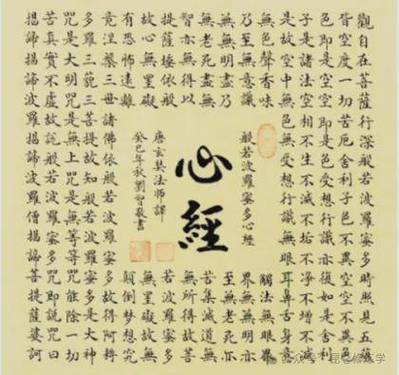 觀自在菩薩行深般若波羅蜜多時照見五蘊
皆空度一切苦厄舍利子色不異空空不異色
色即是空空即是色受想行識亦復如是舍利
子是諸法空相不生不滅不垢不淨不增不減
是故空中無色無受想行識無眼耳鼻舌身意
無色聲香味
觸法無眼界
乃至無意識
界無無明亦
無無明盡乃
至無老死亦
無老死盡無
苦集滅道無
智亦無得以
無所得故菩
提薩埵依般
若波羅蜜多
故心無罣礙
無罣礙故無
有恐怖遠離
顛倒夢想究
竟涅槃三世諸佛依般若波羅蜜多故得阿耨
多羅三藐三菩提故知般若波羅蜜多是大神
咒是大明咒是無上咒是無等等咒能除一切
苦真實不虛故說般若波羅蜜多咒即說咒曰
揭諦揭諦波羅揭諦波羅僧揭諦菩提薩婆訶
般若波羅蜜多心經
心經
唐玄奘法師譯
癸巳年秋劉書
公众号